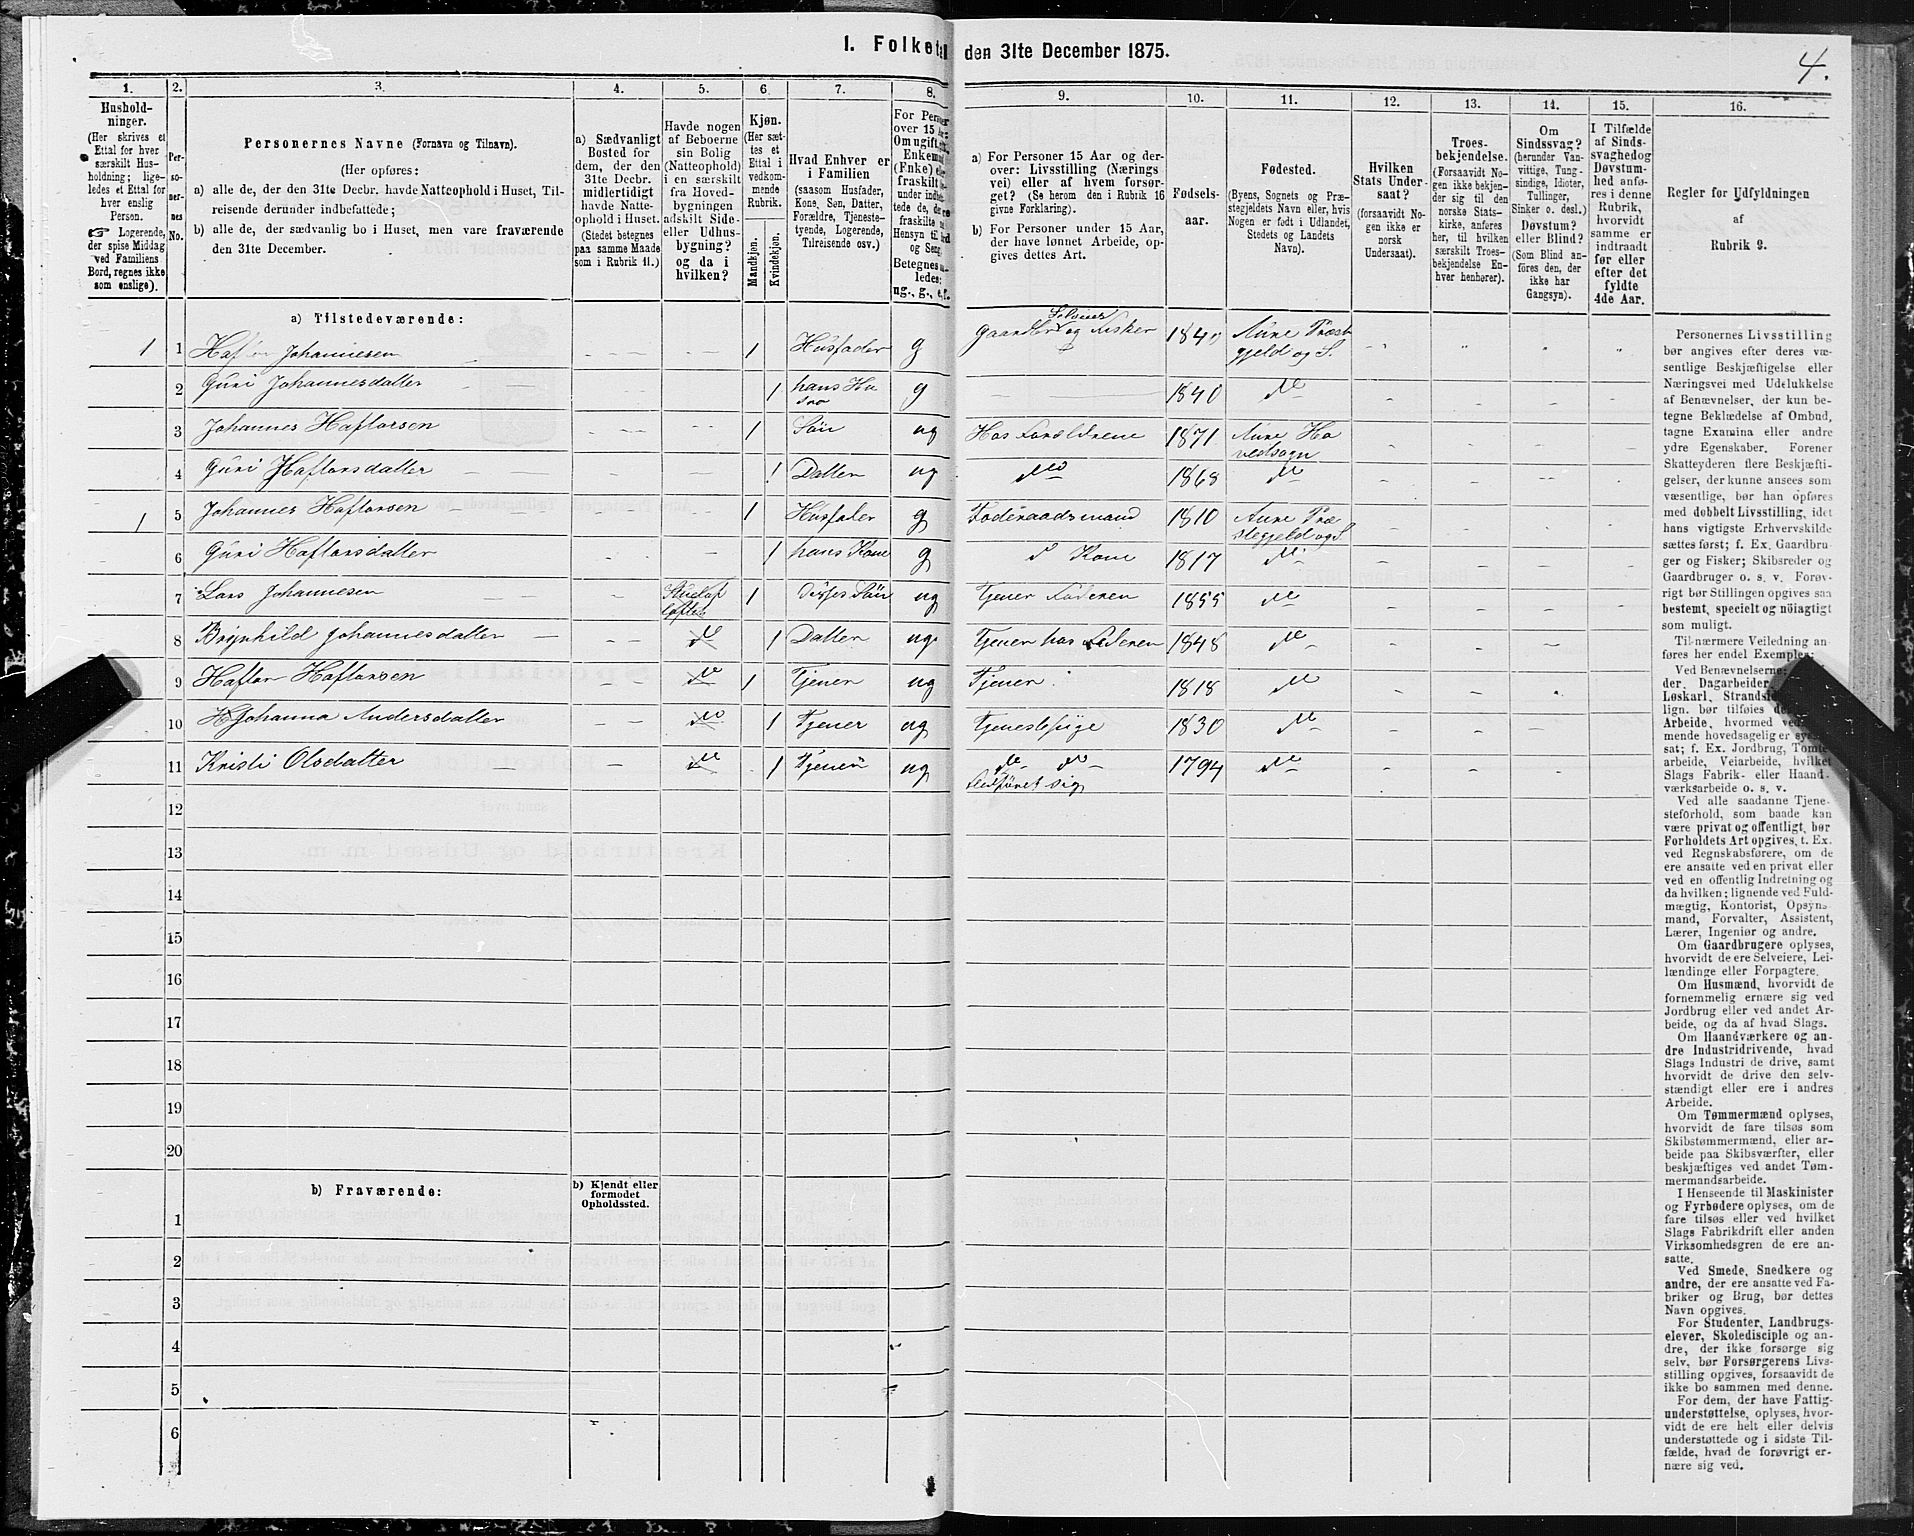 I. Folketal den 31te December 1875.
4.
1. 2. 3. 4. 5. 6. 7. 8. 9. 10. 11. 12. 13. 14. 15. 16.
Hushold-
ninger.
(Her skrives et
Ettal for hver
særskilt Hus-
holdning; lige-
ledes et Ettal for
hver enslig
Person.
☞ Logerende,
der spise Middag
ved Familiens
Bord, regnes ikke
som enslige).
Per-
so-
ner-
nes
No.
Personernes Navne (Fornavn og Tilnavn).
(Her opføres:
a) alle de, der den 31te Decbr. havde Natteophold i Huset, Til-
reisende derunder indbefattede;
b) alle de, der sædvanlig bo i Huset, men vare fraværende
den 31te December.
a) Sædvanligt
Bosted for
dem, der den
31te Decbr.
midlertidigt
havde Natte-
ophold i Huset.
(Stedet betegnes
paa samme Maade
som i Rubrik 11.)
Havde nogen
af Beboerne
sin Bolig
(Natteophold)
i en særskilt
fra Hoved-
bygningen
adskilt Side-
eller Udhus-
bygning?
og da i
hvilken?
Kjøn.
(Her sæt-
tes et
Ettal i
vedkom-
mende
Rubrik.
Mandkjøn.
Kvindekjøn.
Hvad Enhver er
i Familien
(saasom Husfader,
Kone, Søn, Datter,
Forældre, Tjeneste-
tyende, Logerende,
Tilreisende osv.)
For Person
over 15 Aar:
Om ugift, g
Enkem
(Enke) el
fraskilt
under indbe
tede de, de
fraskilte
Hensyn til
og Seng
Betegnes
ledes:
ug., g., e, f.
a) For Personer 15 Aar og der-
over: Livsstilling (Nærings
vei) eller af hvem forsør-
get? (Se herom den i Rubrik 16
givne Forklaring).
b) For Personer under 15 Aar,
der have lønnet Arbeide, op-
gives dettes Art.
Fødsels-
aar.
Fødested.
(Byens, Sognets og Præ-
stegjeldets Navn eller, hvis
Nogen er født i Udlandet,
Stedets og Landets
Navn).
Hvilken
Stats Under-
saat?
(forsaavidt No-
gen ikke er
norsk
Undersaat).
Troes-
bekjendelse.
(Forsaavidt No-
gen ikke bekjen-
der sig til den
norske Stats-
kirke, anføres
her, til hvilken
særskilt Troes-
bekjendelse En-
hver henhører).
Om
Sindssvag?
(herunder Van-
vittige, Tung-
sindige, Idioter,
Tullinger,
Sinker o. desl.)
Døvstum?
eller Blind?
(Som Blind an-
føres den, der
ikke har
Gangsyn).
I Tilfælde
af Sinds-
svaghed og
Døvstum-
hed anfø-
res i denne
Rubrik,
hvorvidt
samme er
indtraadt
før eller
efter det
fyldte
4de Aar.
Regler for Udfyldningen
af
Rubrik 9.
a) Tilstedeværende:
1 1 Haftor Johannesen 1 Husfader g Gaardbr Selveier og Fisker 1840 Aure Præst
gjeld og S.
2 Guri Johannesdatter 1 hans Hu
stro g 1840 do
3 Johannes Haftorsen 1 Søn ug Hos Forældrene 1871 Aure Ho
vedsogn
4 Guri Haftorsdatter 1 Datter ug do 1868 do
1 5 Johannes Haftorsen 1 Husfader g Føderaadsmand 1810 Aure Præ
stegjeld og S.
6 Guri Haftorsdatter 1 hans Kone g d Kone 1817 do
7 Lars Johannesen 1 Disses Søn ug Tjener Faderen 1855 do
8 Brynhild Johannesdatter do 1 Datter ug Tjener hos Faderen 1848 do
9 Haftor Haftorsen do 1 Tjener ug Tjener 1818 do
10 Johanna Andersdatter do 1 Tjener ug Tjenestepige 1830 do
11 Kristi Olsdatter do 1 Tjener ug do do 1794 do
sig
12
13
14
15
16
17
18
19
20
b) Fraværende:
b) Kjendt eller
formodet
Opholdssted.
1
2
3
4
5
6
Personernes Livsstilling
bør angives efter deres væ-
sentlige Beskjæftigelse eller
Næringsvei med Udelukkelse
af Benævnelser, der kun be-
tegne Beklædelse af Ombud,
tagne Examina eller andre
ydre Egenskaber. Forener
Skatteyderen flere Beskjæfti-
gelser, der kunne ansees som
væsentlige, bør han opføres
med dobbelt Livsstilling, idet
hans vigtigste Erhvervskilde
sættes først; f. Ex. Gaardbru-
ger og Fisker; Skibsreder og
Gaardbruger o. s. v. Forøv-
rigt bør Stillingen opgives saa
bestemt, specielt og nöiagtigt
som muligt.
Til nærmere Veiledning an-
føres her endel Exempler:
Ved Benævnelserne:
der, Dagarbeider,
Løskarl, Strandsid
lign. bør tilføies de
Arbeide, hvormed ved
mende hovedsagelig er sys
sat; f. Ex. Jordbrug, Tomte
arbeide, Veiarbeide, hvilket
Slags Fabrik- eller Haand-
værksarbeide o. s. v.
Ved alle saadanne Tjene-
steforhold, som baade kan
være privat og offentligt, bør
Forholdets Art opgives, t. Ex.
ved Regnskabsførere, om de
ere ansatte ved en privat eller
ved en offentlig Indretning og
da hvilken; lignende ved Fuld-
mægtig, Kontorist, Opsyns-
mand, Forvalter, Assistent,
Lærer, Ingeniør og andre.
Om Gaardbrugere oplyses,
hvorvidt de ere Selveiere, Lei-
lændinge eller Forpagtere.
Om Husmænd, hvorvidt de
fornemmelig ernære sig ved
Jordbrug eller ved andet Ar-
beide, og da af hvad Slags.
Om Haandværkere og an-
dre Industridrivende, hvad
Slags Industri de drive, samt
hvorvidt de drive den selv-
stændigt eller ere i andres
Arbeide.
Om Tømmermænd oplyses,
hvorvidt de fare tilsøs som
Skibstømmermænd, eller ar-
beide paa Skibsværfter, eller
beskjæftiges ved andet Tøm-
mermandsarbeide.
I Henseende til Maskinister
og Fyrbødere oplyses, om de
fare tilsøs eller ved hvilket
Slags Fabrikdrift eller anden
Virksomhedsgren de ere an-
satte.
Ved Smede, Snedkere og
andre, der ere ansatte ved Fa-
briker og Brug, bør dettes
Navn opgives.
For Studenter, Landbrugs-
elever, Skoledisciple og an-
dre, der ikke forsørge sig
selv, bør Forsørgerens Livs-
stilling opgives, forsaavidt de
ikke bo sammen med denne.
For dem, der have Fattig-
understøttelse, oplyses, hvor-
vidt de ere helt eller delvis
understøttede og i sidste Til-
fælde, hvad de forøvrigt er-
nære sig ved.